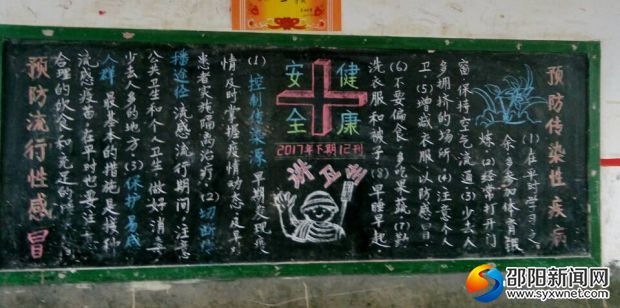 预防传染性疾病
(1)在平时学习之
余多参加体育锻
炼(2)经常打开门
窗保持空气流通(3)少去人
多拥挤的场所(4)注意个人
卫(5)增减衣服以防感冒
(6)不要偏食,多吃果蔬(7)勤
洗衣服和被子(8)早睡早起.
安全
健康
2017年下期12刊
(1)控制传染源 早期发现疫
情,及时掌握疫情动态,及早
患者实施隔离治疗.(2)切断传
播途径 流感流行期间,注意
公共卫生和个人卫生,做好消毒
少去人多的地方(3)保护易感
人群 最基本的措施是接种
流感疫苗,在平时也要注
合理的饮食和充足的
预防流行性感冒
邵阳新闻网
www.syxwnet.com